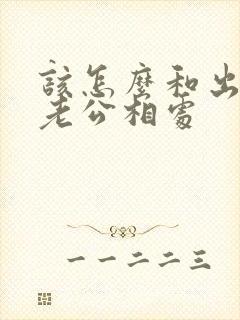 該怎麼和出
老公相處
一一二二三